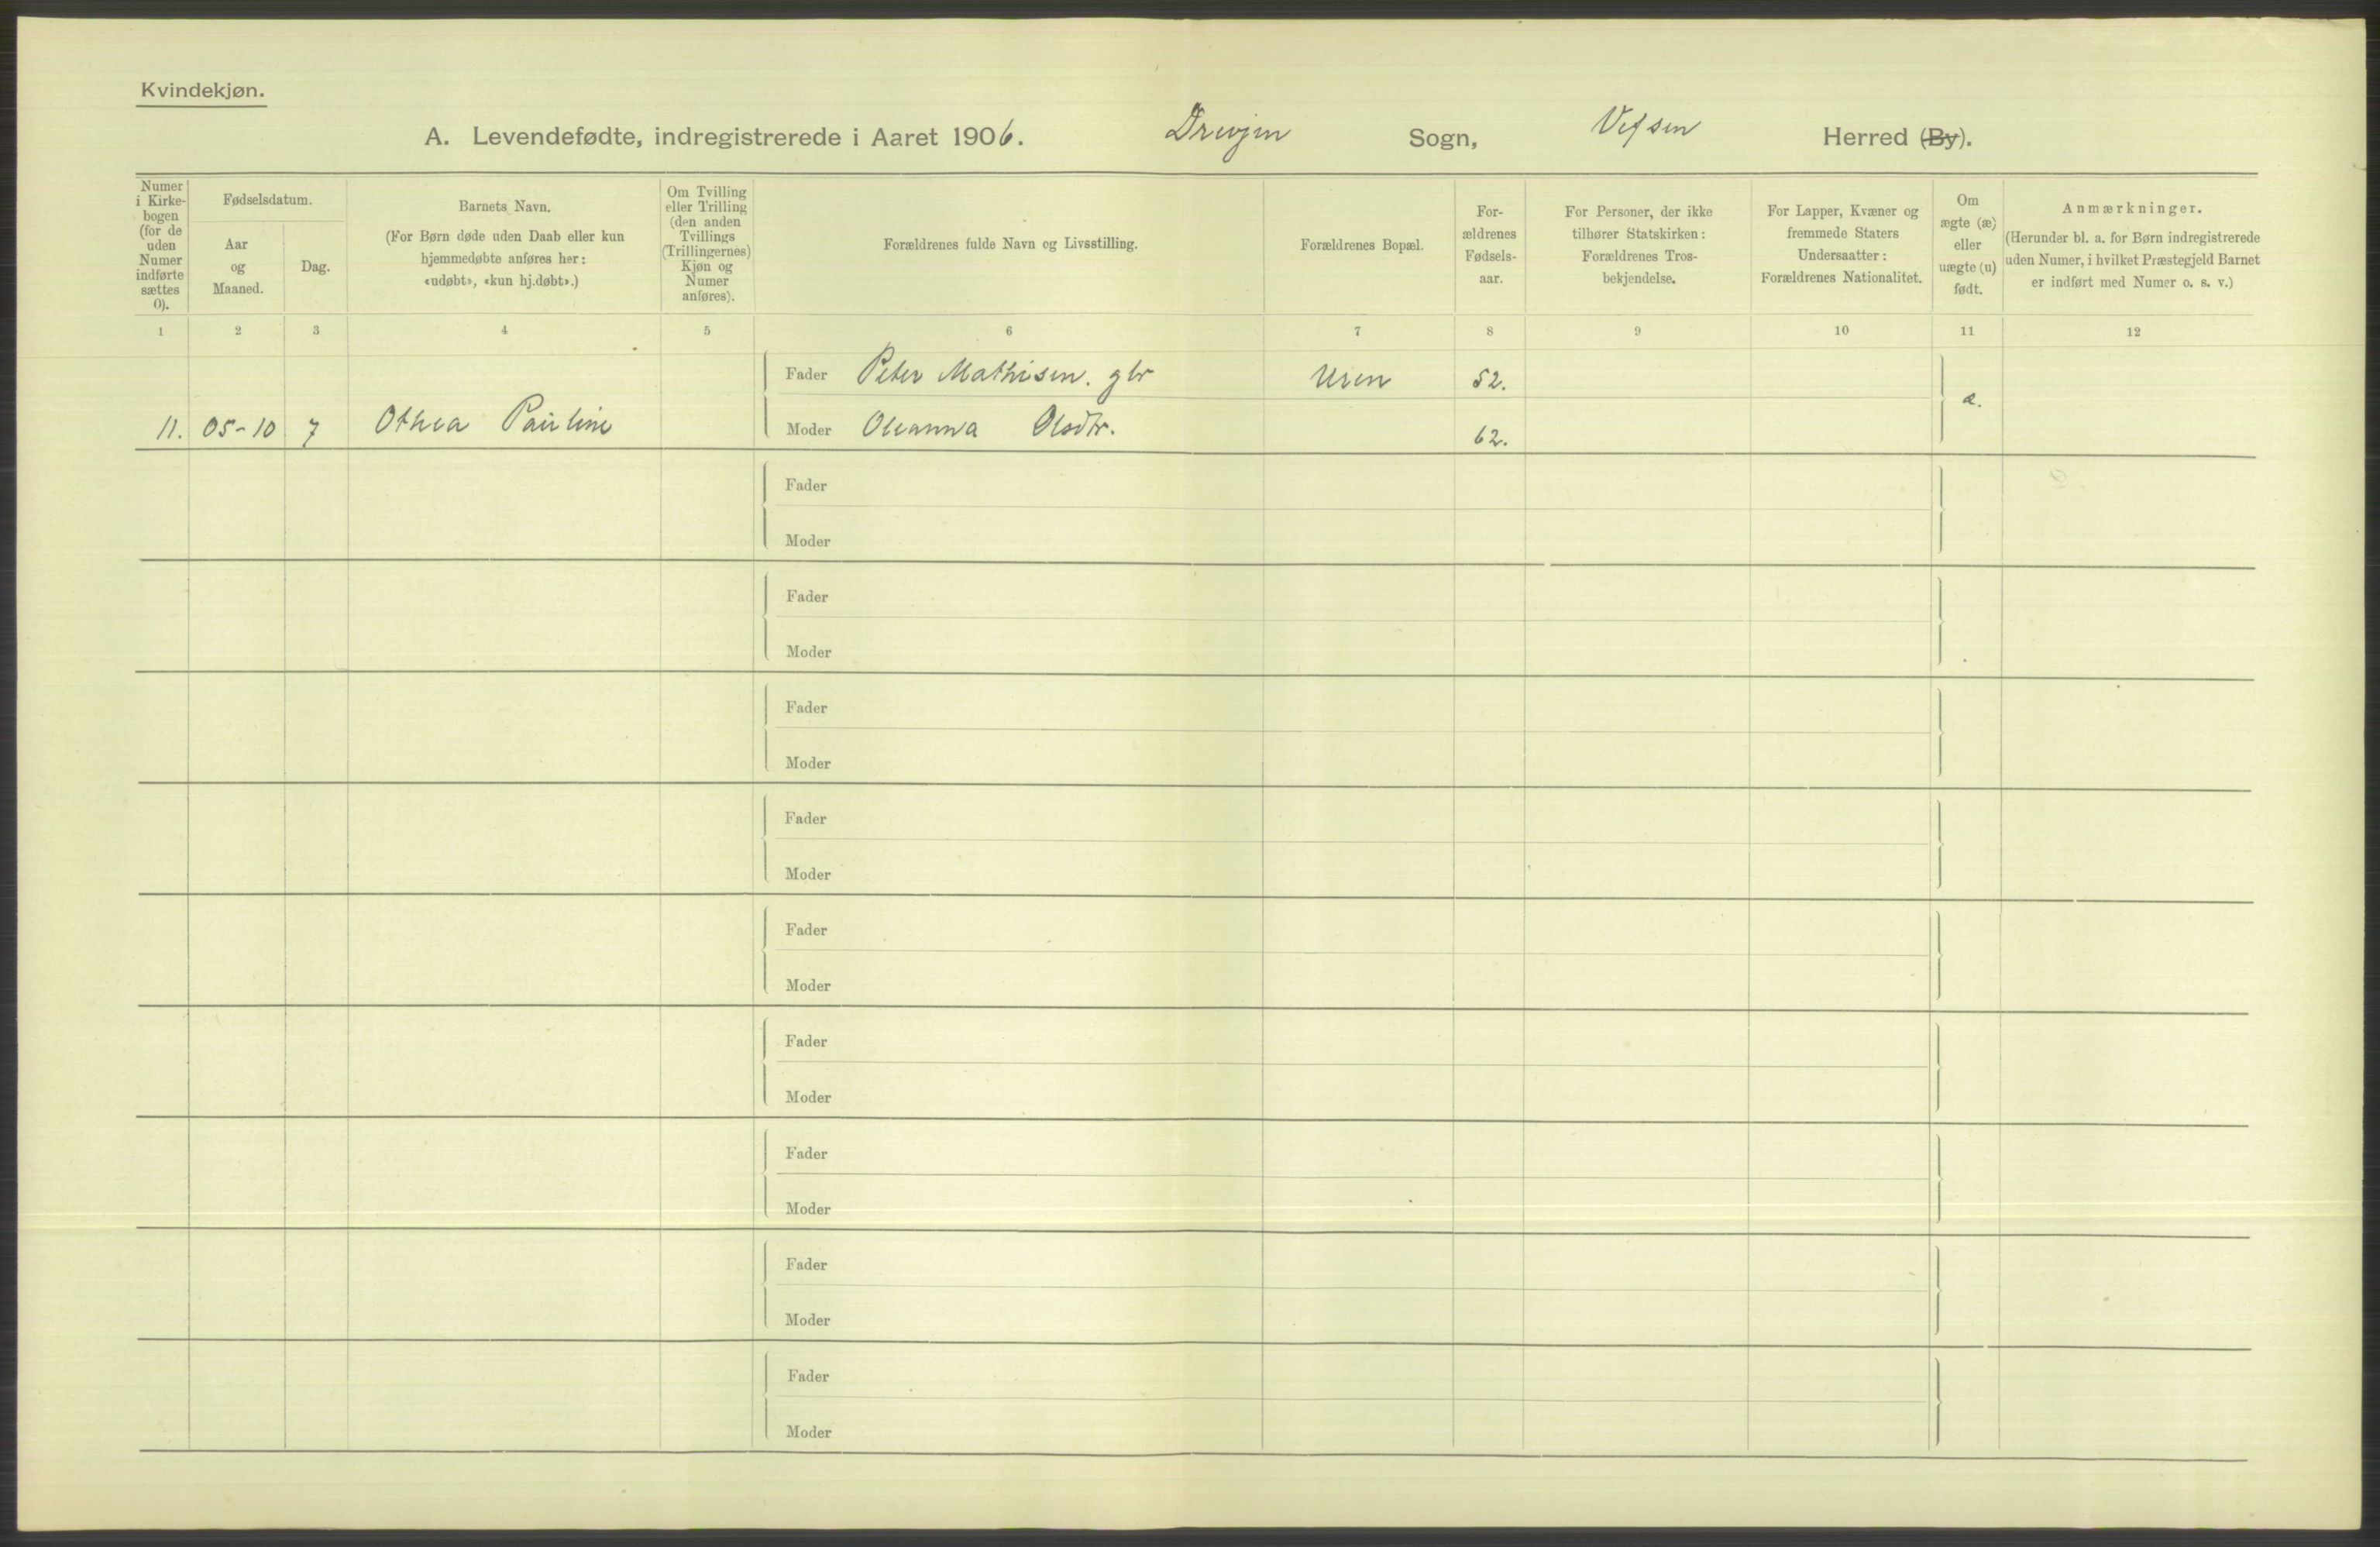 Kvindekjøn.
A. Levendefødte, indregistrerede i Aaret 1906. Drevjen Sogn, Vefsen Herred (By).
Numer
i Kirke-
bogen
(for de
uden
Numer
indførte
sættes
0).
Fødselsdatum.
Aar
og
Maaned.
Dag.
Barnets Navn.
(For Børn døde uden Daab eller kun
hjemmedøbte anføres her:
«udøbt», «kun hj.døbt».)
Om Tvilling
eller Trilling
(den anden
Tvillings
(Trillingernes)
Kjøn og
Numer
anføres).
Forældrenes fulde Navn og Livsstilling.
Forældrenes Bopæl.
For-
ældrenes
Fødsels-
aar.
For Personer, der ikke
tilhører Statskirken:
Forældrenes Tros-
bekjendelse.
For Lapper, Kvæner og
fremmede Staters
Undersaatter:
Forældrenes Nationalitet.
Om
ægte (æ)
eller
uægte (u)
født.
Anmærkninger.
(Herunder bl. a. for Børn indregistrerede
uden Numer, i hvilket Præstegjeld Barnet
er indført med Numer o. s. v.)
1 2 3 4 5 6 7 8 9 10 11 12
Fader Peter Mathisen. gbr Uren 52.
æ.
11. 05-10 7 Othea Pauline Moder Oleanna Olsdtr. 62.
Fader
Moder
Fader
Moder
Fader
Moder
Fader
Moder
Fader
Moder
Fader
Moder
Fader
Moder
Fader
Moder
Fader
Moder